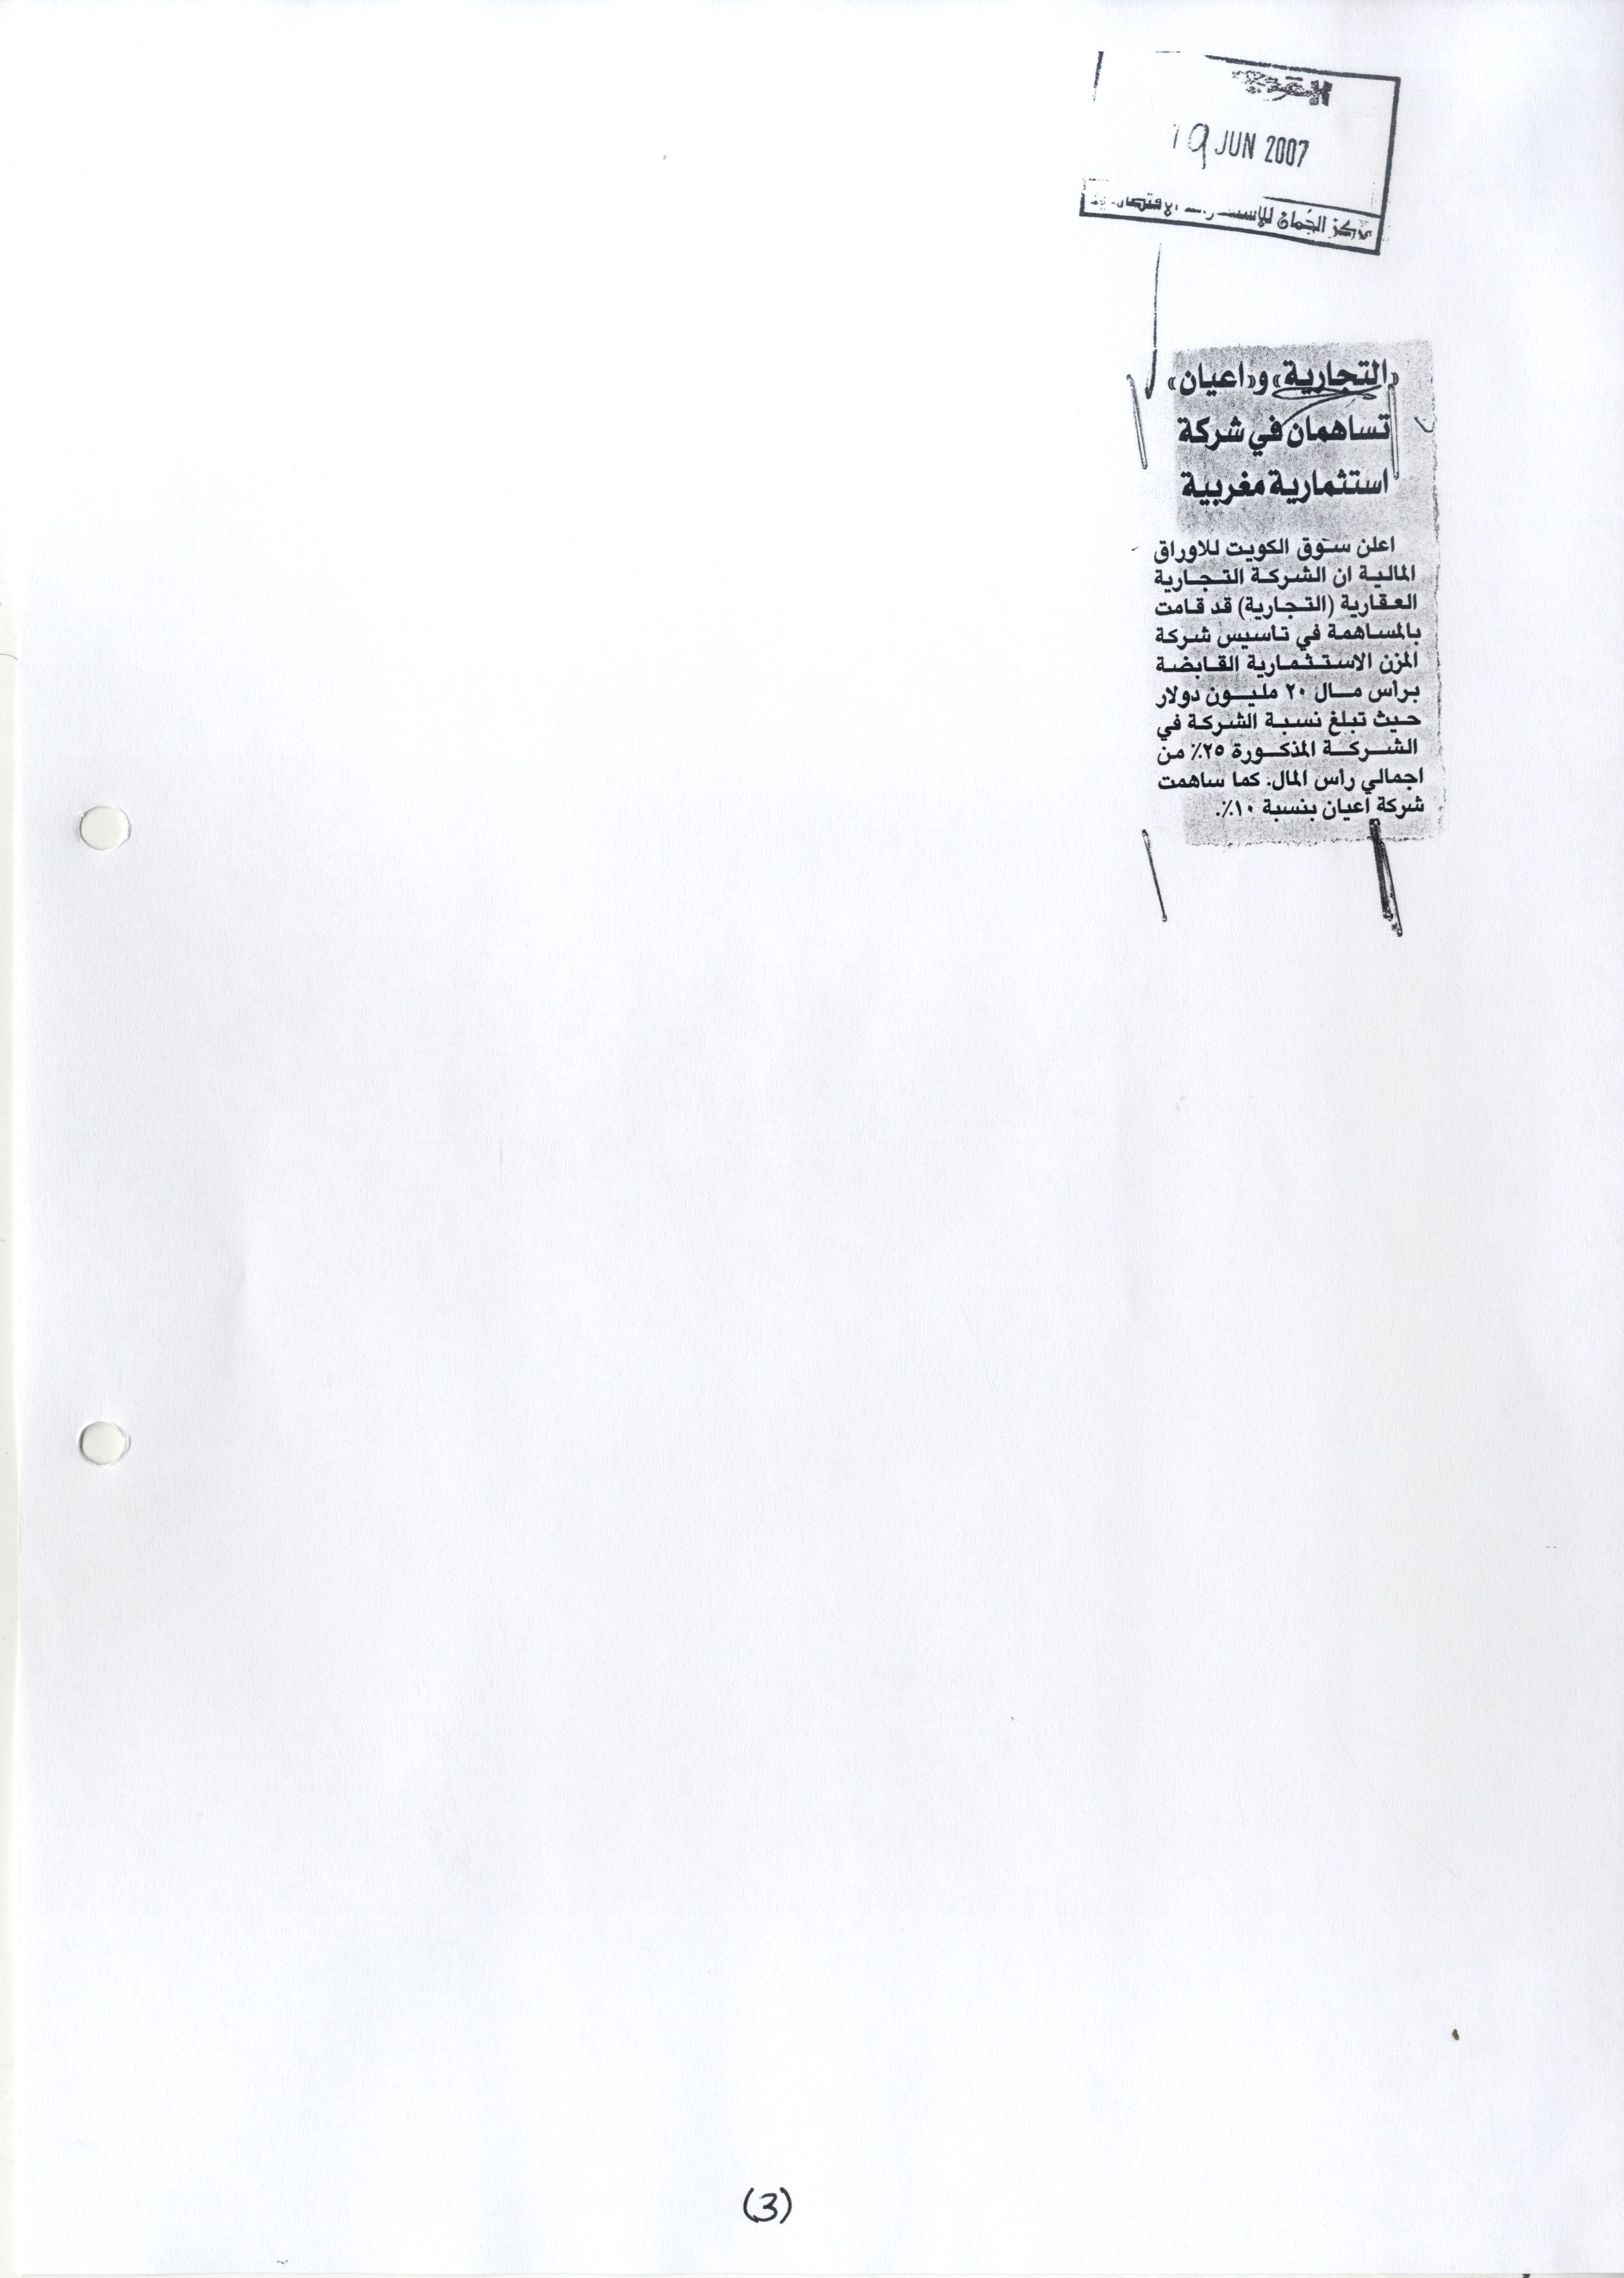 19 JUN 2007
مركز الجُمان للاستشارات الاقتصادية
«التجارية» و«اعيان»
تساهمان في شركة
استثمارية مغربية
اعلن سوق الكويت للاوراق
المالية ان الشركة التجارية
العقارية (التجارية) قد قامت
بالمساهمة في تاسيس شركة
المزن الاستثمارية القابضة
برأس مال ٢٠ مليون دولار
حيث تبلغ نسبة الشركة في
الشركة المذكورة ٢٥٪ من
اجمالي رأس المال. كما ساهمت
شركة اعيان بنسبة ١٠٪.
(3)